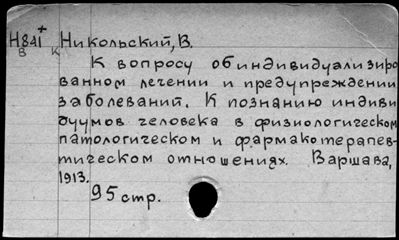 H841+ Никольский, В.
В К
К вопросу об индивидуализиро
ванном лечении и предупреждении
заболеваний. К познанию индиви
дуумов человека в физиологическом
патологическом и фармакотерапев-
тическом отношениях. Варшава,
1913.
95 стр.